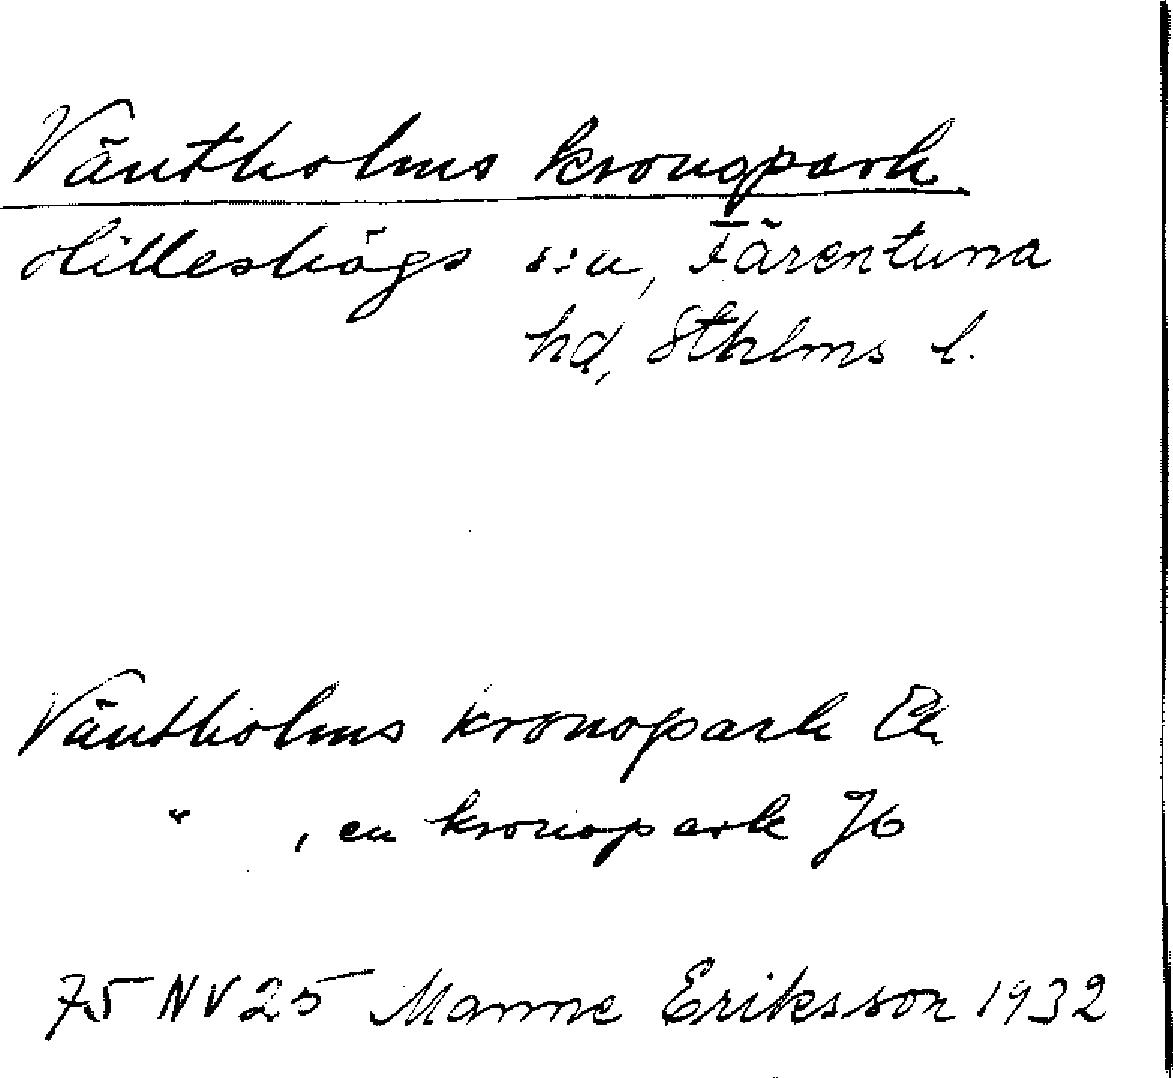 Väntholms kronopark
Hilleshögs s:n, Färentuna
hd, Sthlms l.
Väntholms kronopark Ek
" , en kronopark Jb
75 NV 25 Manne Eriksson 1932